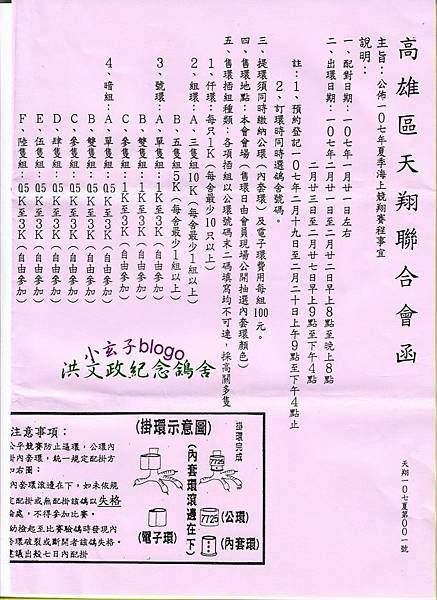 高雄區天翔聯合會函
天翔一0七夏第00一號
主旨：公佈一0七年夏季海上競翔賽程事宜
說明：
一、配對日期：一0七年一月廿一日左右
二、出環日期：一0七年二月廿一日至二月廿二日早上8點至晚上8點
二月廿三日至二月廿七日早上9點至下午4點
註：1、預約登記一0七年二月十九日至二月二十日上午9點至下午4點止
2、訂環時同時選鴿舍號碼。
三、提環須同時繳納公環（內套環）及電子環費用每組100元。
四、售環地點：本會會場（售環日由會員現場公開抽選內套環顏色）
五、售環插組種類：各項插組以公環號碼末二碼填寫均不可連，採高關多隻
1、仟環：每只1K（每舍最少10只以上）
2、組環：A、三隻組10K（每舍最少1組以上）
B、五隻組5K（每舍最少1組以上）
3、號環：A、單隻組：1K至3K（自由參加）
B、雙隻組：1K至3K（自由參加）
C、參隻組：1K至3K（自由參加）
4、暗組：A、單隻組：05K至3K（自由參加）
B、雙隻組：05K至3K（自由參加）
C、參隻組：05K至3K（自由參加）
D、肆隻組：05K至3K（自由參加）
E、伍隻組：05K至3K（自由參加）
F、陸隻組：05K至3K（自由參加）
小玄子blogo
洪文政紀念鴿舍
注意事項：
公平競賽防止遙環，公環內
掛內套環，統一規定配掛方
如右圖：
內套環滾邊在下，如未依規
定配掛或無配掛該鴿以失格
論處，不得參加比賽。
幼撿起至比賽驗鴿時發現內
套環破裂或斷開者該鴿失格。
建議出殼七日內配掛
(掛環示意圖)
掛環完成
(內套環滾邊在下)
7725
7725
(公環)
(電子環)
(內套環)